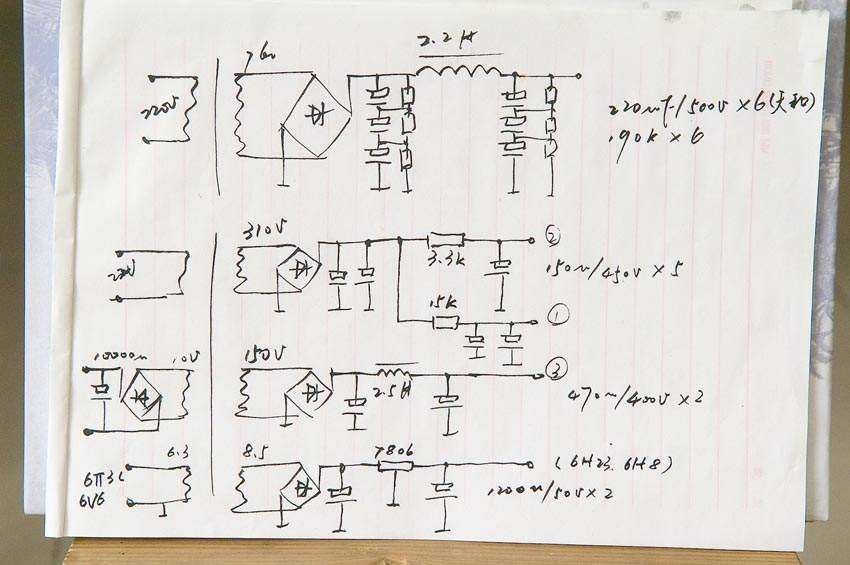 2.2H
760
220V
220μ/500V×6(天和)
190k×6
310V
②
3.3k
220V
150μ/450V×5
15k
①
10000μ
10V
150V
③
2.5H
470μ/400V×2
6.3
8.5
7806
(6H23. 6H8)
6П3C
6V6
1200μ/50V×2